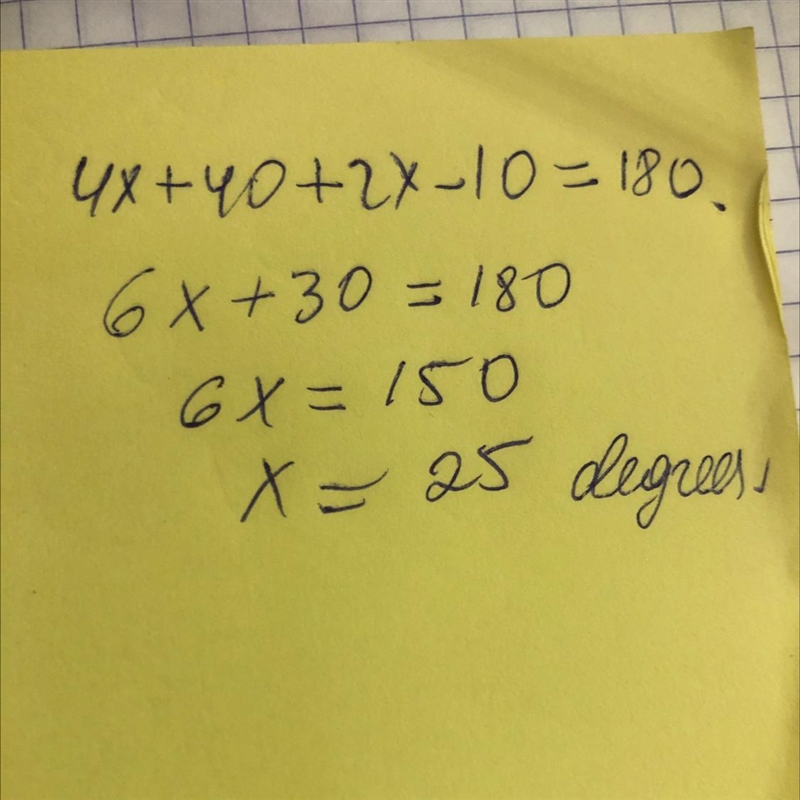 4x+40+2x-10=180.
6x+30=180
6x=150
x=25 degrees.